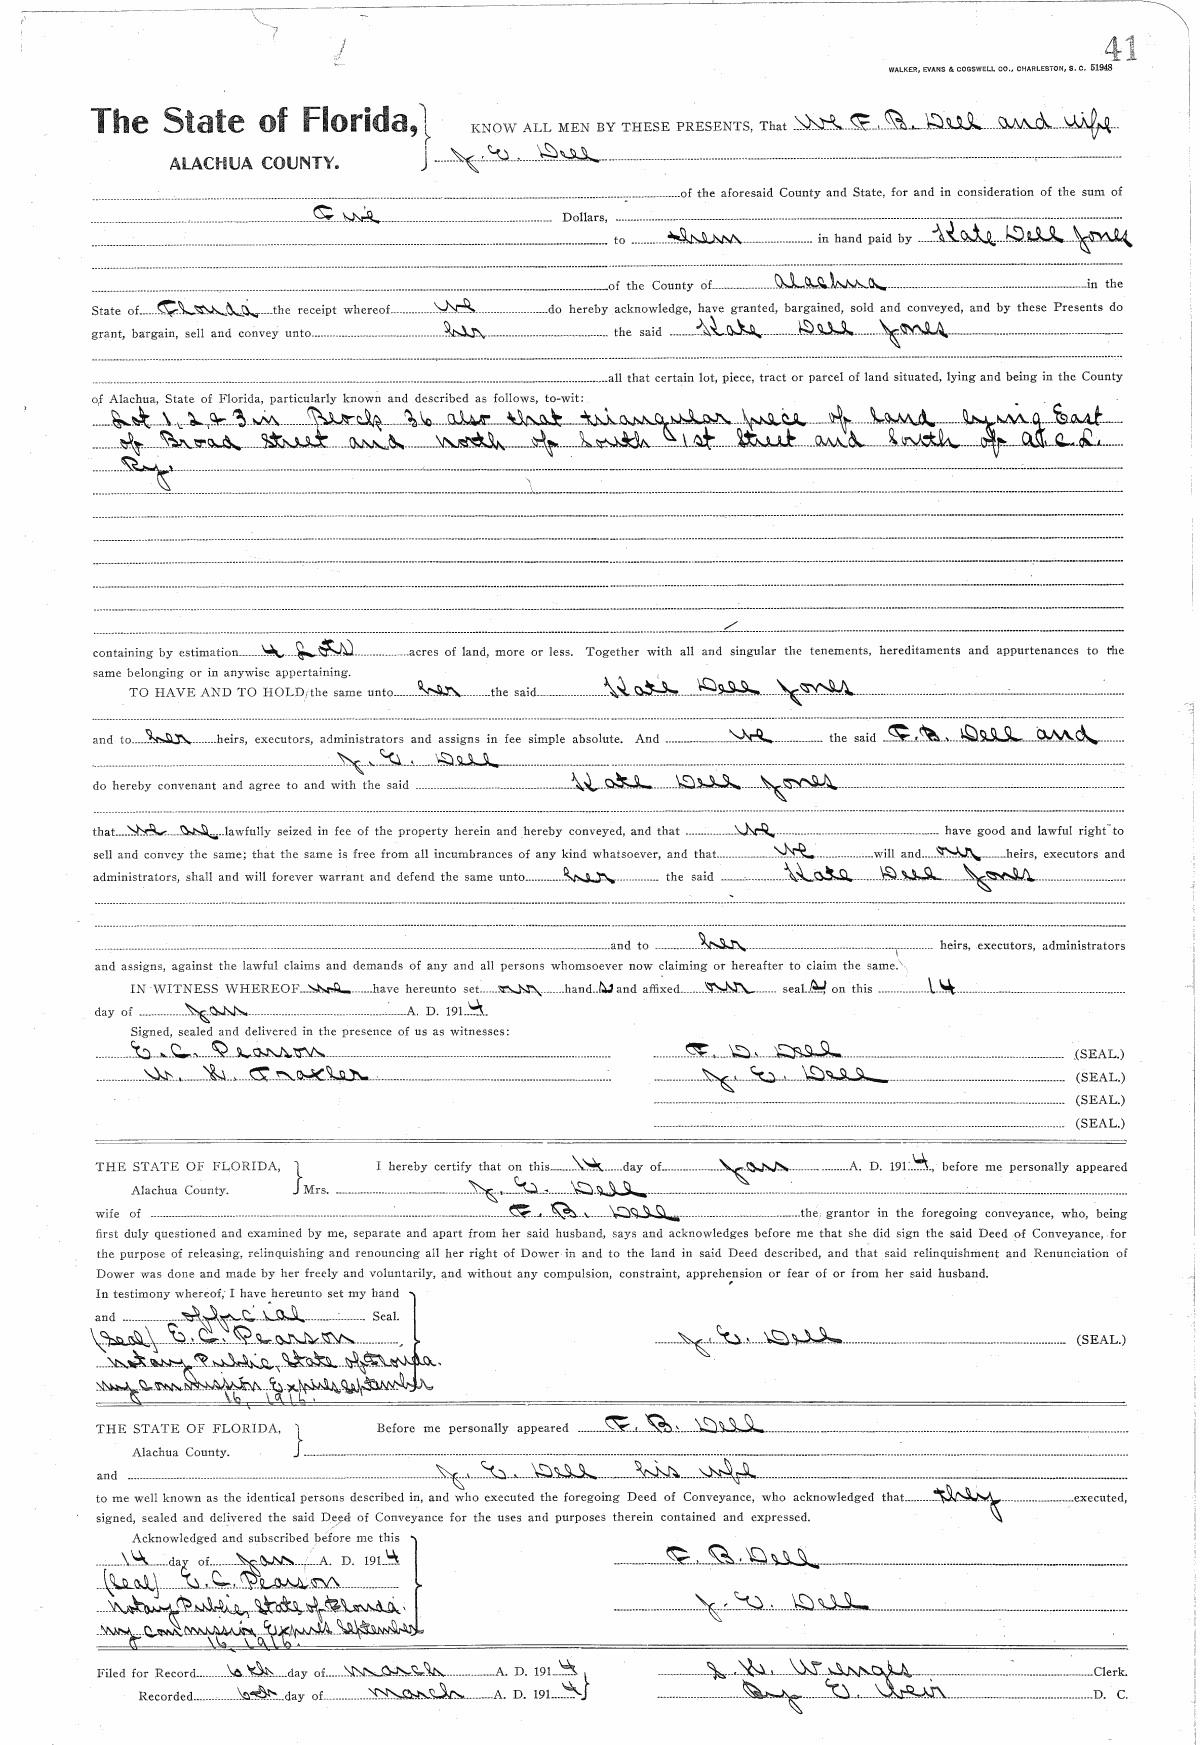 41
WALKER, EVANS & COGSWELL CO., CHARLESTON, S. C. 51948
The State of Florida, KNOW ALL MEN BY THESE PRESENTS, That We F. B. Dell and wife
ALACHUA COUNTY. J. E. Dell
of the aforesaid County and State, for and in consideration of the sum of
Five Dollars,
to them in hand paid by Kate Dell Jones
of the County of Alachua in the
State of Florida the receipt whereof we do hereby acknowledge, have granted, bargained, sold and conveyed, and by these Presents do
grant, bargain, sell and convey unto her the said Kate Dell Jones
all that certain lot, piece, tract or parcel of land situated, lying and being in the County
of Alachua, State of Florida, particularly known and described as follows, to-wit:
Lot 1, 2, & 3 in Block 36 also that triangular piece of land lying East
of Broad Street and north of South 1st Street and South of A.C.L.
Ry.
containing by estimation 4 Lots acres of land, more or less. Together with all and singular the tenements, hereditaments and appurtenances to the
same belonging or in anywise appertaining.
TO HAVE AND TO HOLD the same unto her the said Kate Dell Jones
and to her heirs, executors, administrators and assigns in fee simple absolute. And we the said F. B. Dell and
J. E. Dell
do hereby convenant and agree to and with the said Kate Dell Jones
that we are lawfully seized in fee of the property herein and hereby conveyed, and that we have good and lawful right to
sell and convey the same; that the same is free from all incumbrances of any kind whatsoever, and that we will and our heirs, executors and
administrators, shall and will forever warrant and defend the same unto her the said Kate Dell Jones
and to her heirs, executors, administrators
and assigns, against the lawful claims and demands of any and all persons whomsoever now claiming or hereafter to claim the same.
IN WITNESS WHEREOF we have hereunto set our hand s and affixed our seal s on this 14
day of Jan A. D. 1914.
Signed, sealed and delivered in the presence of us as witnesses:
E. C. Pearson F. D. Dell (SEAL.)
W. H. Traxler J. E. Dell (SEAL.)
(SEAL.)
(SEAL.)
THE STATE OF FLORIDA, I hereby certify that on this 14 day of Jan A. D. 1914, before me personally appeared
Alachua County. Mrs. J. E. Dell
wife of F. B. Dell the grantor in the foregoing conveyance, who, being
first duly questioned and examined by me, separate and apart from her said husband, says and acknowledges before me that she did sign the said Deed of Conveyance, for
the purpose of releasing, relinquishing and renouncing all her right of Dower in and to the land in said Deed described, and that said relinquishment and Renunciation of
Dower was done and made by her freely and voluntarily, and without any compulsion, constraint, apprehension or fear of or from her said husband.
In testimony whereof, I have hereunto set my hand
and official Seal.
(Seal) E. C. Pearson J. E. Dell (SEAL.)
Notary Public, State of Florida.
My Commission Expires September
16, 1916.
THE STATE OF FLORIDA, Before me personally appeared F. B. Dell
Alachua County.
and J. E. Dell his wife
to me well known as the identical persons described in, and who executed the foregoing Deed of Conveyance, who acknowledged that they executed,
signed, sealed and delivered the said Deed of Conveyance for the uses and purposes therein contained and expressed.
Acknowledged and subscribed before me this
14 day of Jan A. D. 1914 F. B. Dell
(Seal) E. C. Pearson
Notary Public, State of Florida. J. E. Dell
My Commission Expires September
16, 1916.
Filed for Record 6th day of March A. D. 1914 Clerk.
Recorded 6th day of March A. D. 1914 By E. Weir D. C.